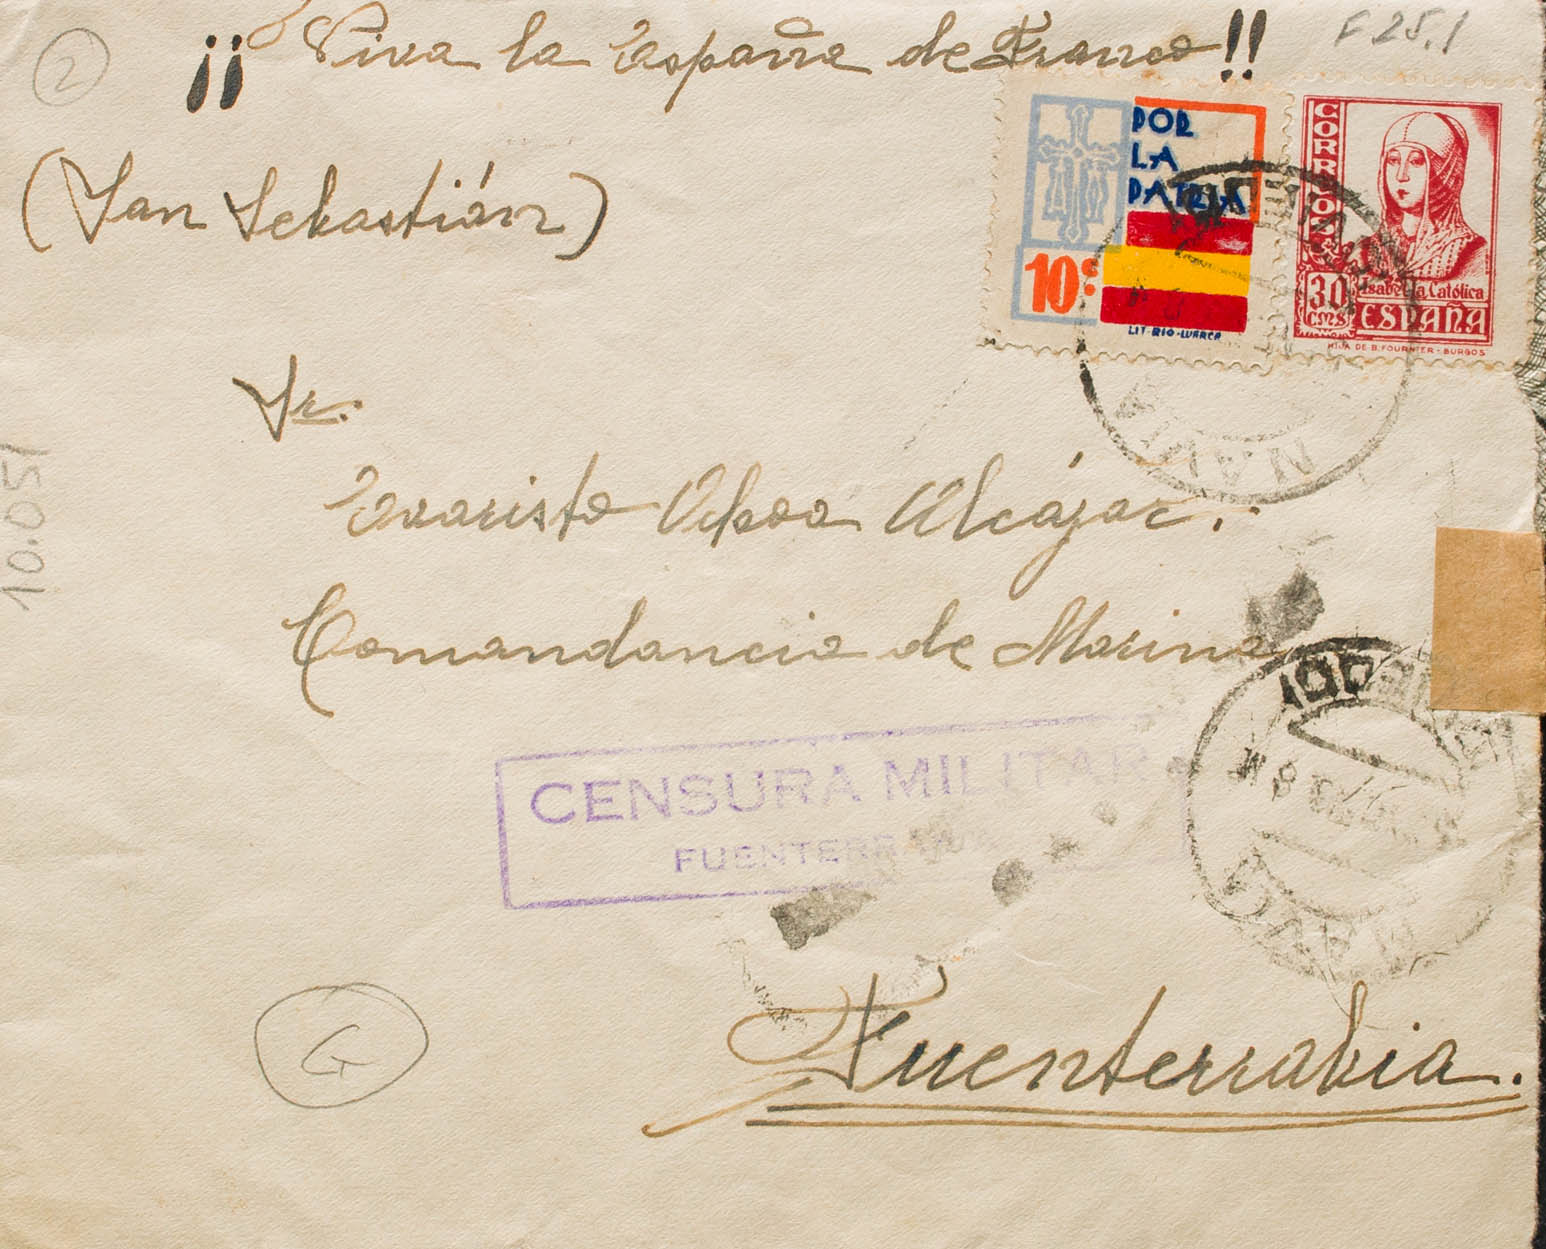 2
¡¡ Viva la España de Franco !!
F 25.1
(San Sebastián)
POR
LA
PATRIA
10 c.
LIT-RIO-LUARCA
CORREOS
30
CMS
Isabel la Católica
ESPAÑA
HIJA DE B. FOURNIER - BURGOS
Sr.
Evaristo Ochoa Alcázar.
Comandancia de Marina
10.051
CENSURA MILITAR
FUENTERRABIA
NAVIA
G
Fuenterrabia.